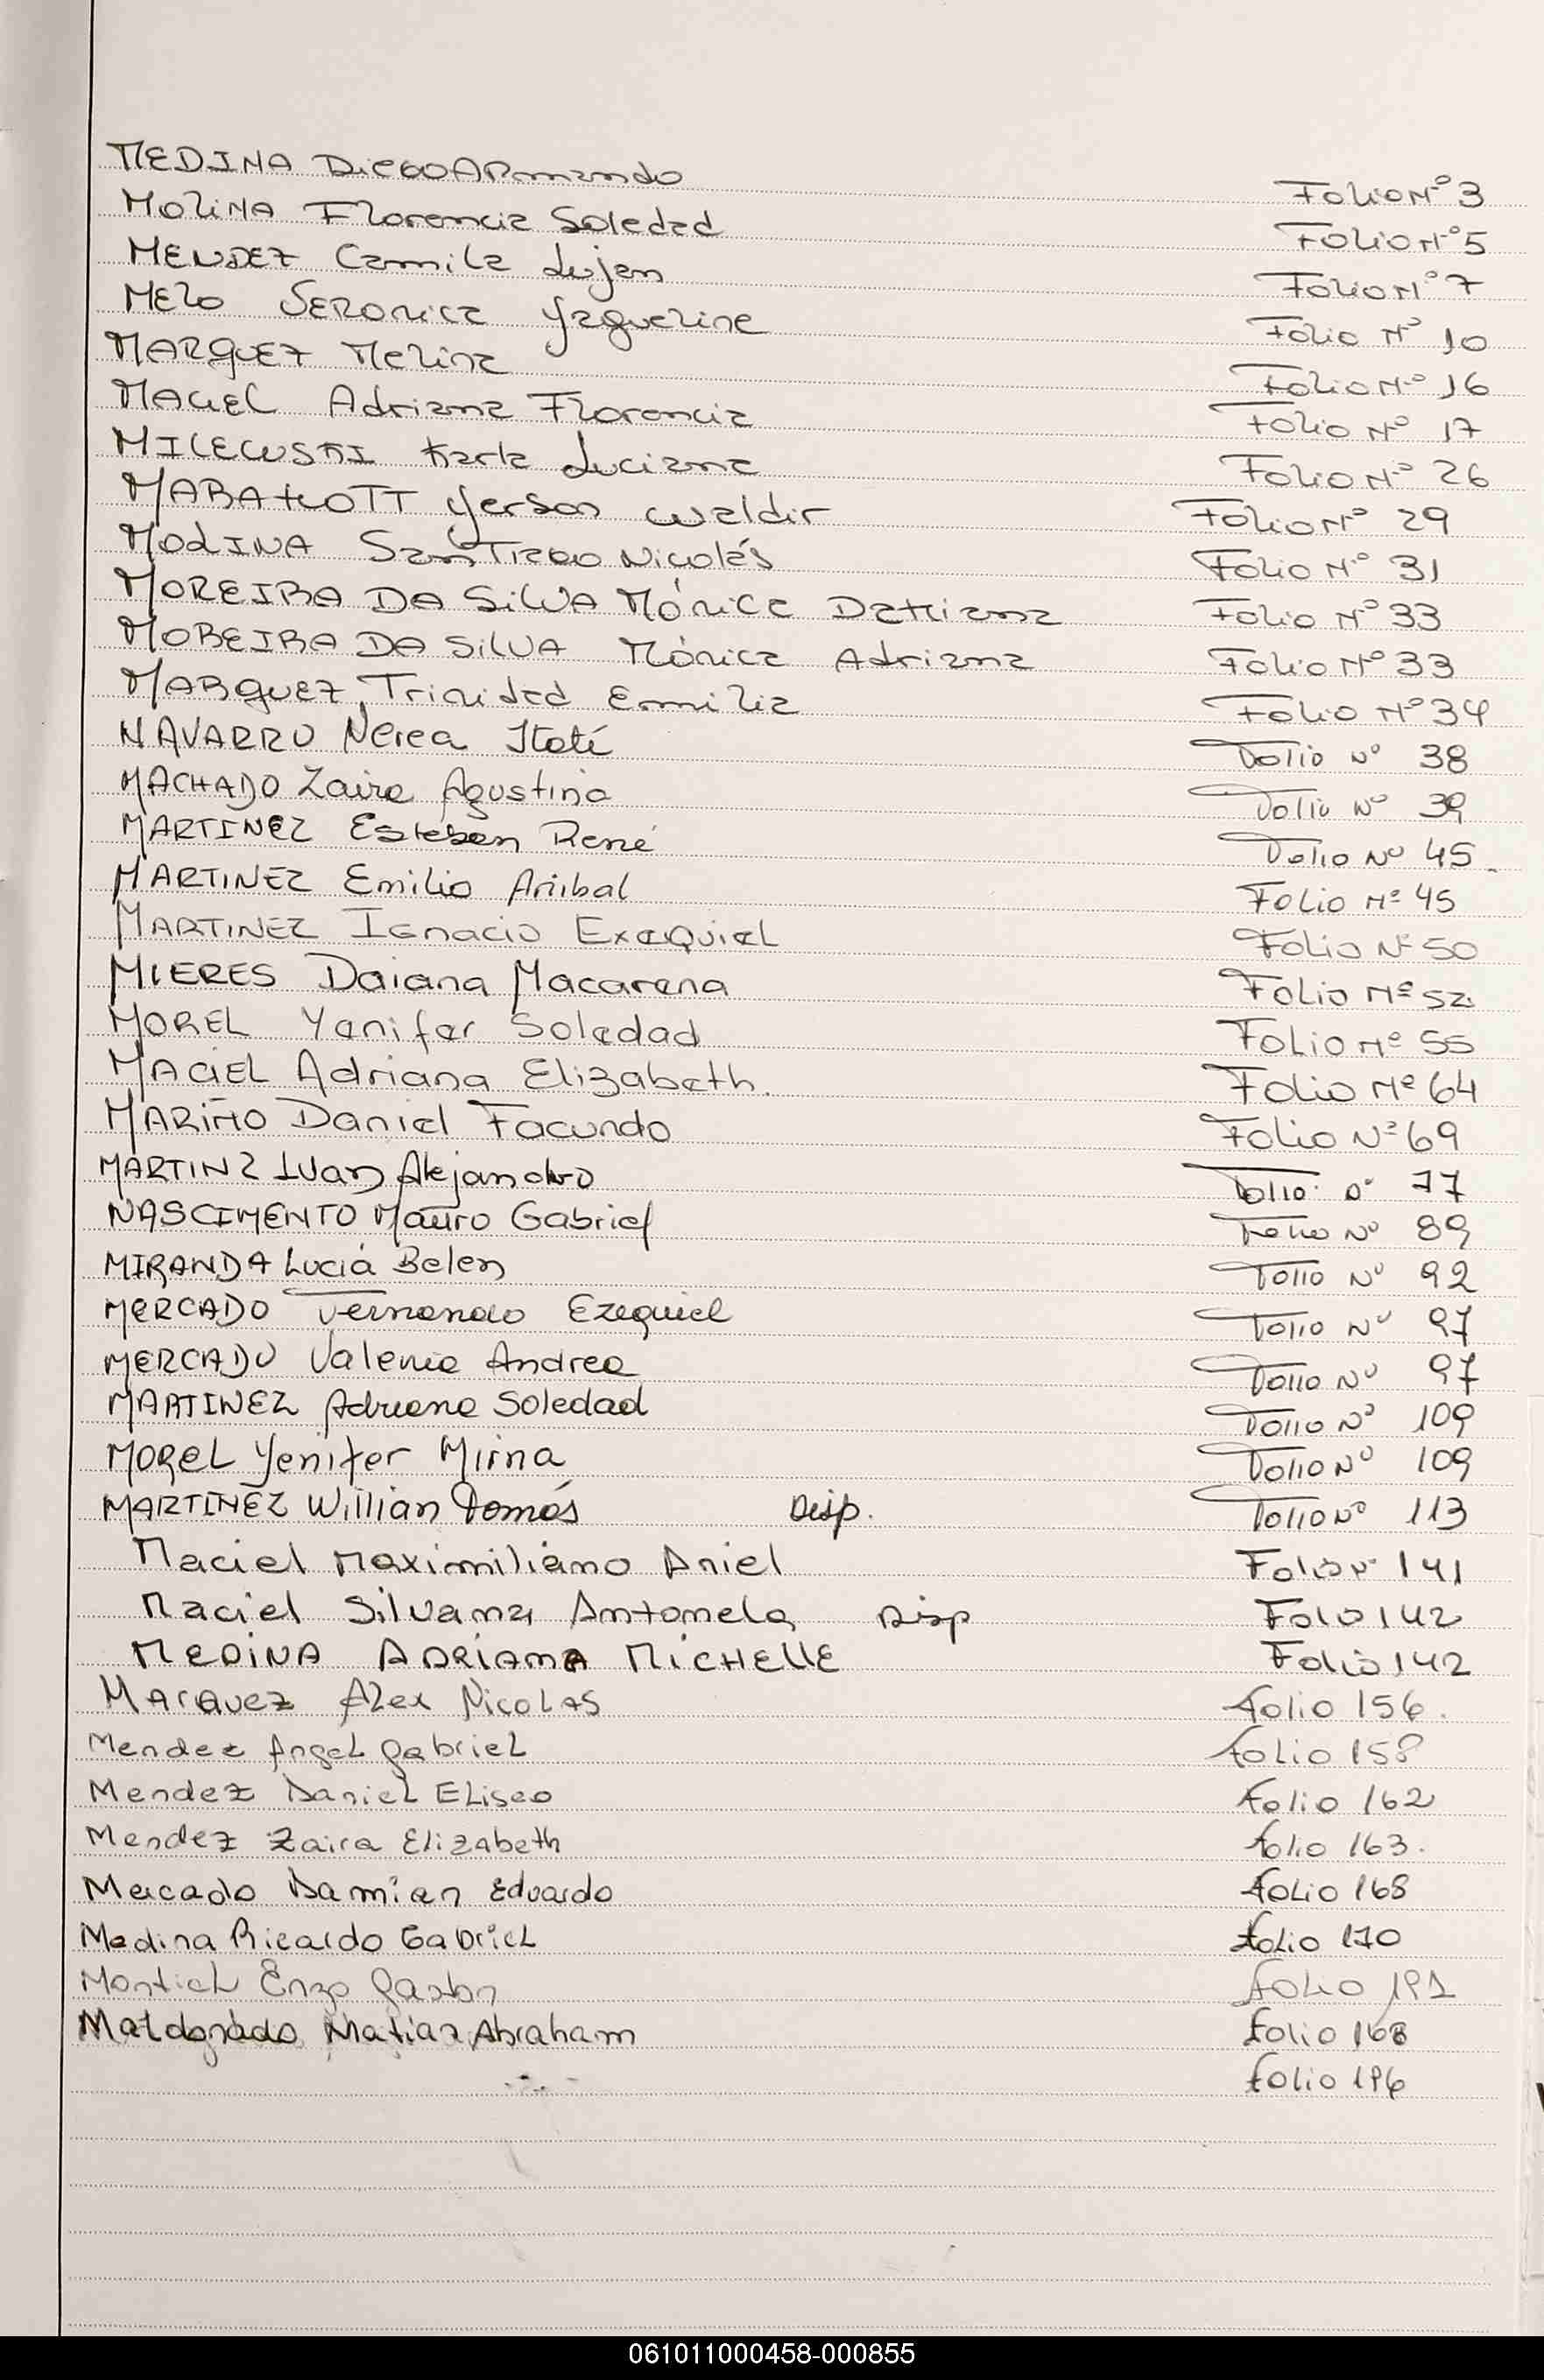 MEDINA Diego ARmando Folio N° 3
MOLINA Florencia Soledad Folio N° 5
MENDEZ Camila Lujan Folio N° 7
MELO VERONICA Yaqueline Folio N° 10
MARQUEZ Melina Folio N° 16
MACIEL Adriana Florencia Folio N° 17
MILEWSKI Karla Luciana Folio N° 26
Yerson Waldir Folio N° 29
MOLINA SanTiago Nicolás Folio N° 31
MOREIRA DA SILVA Mónica Folio N° 33
MOREIRA DA SILVA Mónica Adriana Folio N° 33
MARQUEZ, Trinidad Emilia Folio N° 34
NAVARRO Nerea Itatí Folio N° 38
MACHADO Zaira Agustina Folio N° 39
MARTINEZ Esteban René Folio N° 45
MARTINEZ Emilio Anibal Folio Nº 45
MARTINEZ Ignacio Exequiel Folio Nº 50
MIERES Daiana Macarena Folio Nº 52
MOREL Yenifer Soledad Folio Nº 55
MACIEL Adriana Elizabeth. Folio Nº 64
MARIÑO Daniel Facundo Folio Nº 69
MARTINZ Ivan Alejandro Folio: N° 77
NASCIMENTO Mauro Gabriel Folio N° 89
MIRANDA Lucia Belen Folio N° 92
MERCADO Fernando Ezequiel Folio N° 97
MERCADO Valeria Andrea Folio N° 97
MARTINEZ Adriana Soledad Folio N° 109
MOREL Yenifer Mirna Folio N° 109
MARTINEZ Willian Tomás Disp. Folio N° 113
Maciel Maximiliano Ariel Folio N° 141
Maciel Silvana Antonela Disp Folo 142
MEDINA ADRIANA MICHELLE Folio 142
Marquez Alex Nicolas folio 156.
Mendez Angel Gabriel folio 158
Mendez Daniel Eliseo folio 162
Mendez Zaira Elizabeth folio 163.
Mercado Damian Eduardo folio 168
Medina Ricardo Gabriel folio 170
Montiel Enzo Gaston folio 191
Maldonado Matias Abraham folio 168
folio 196
061011000458-000855